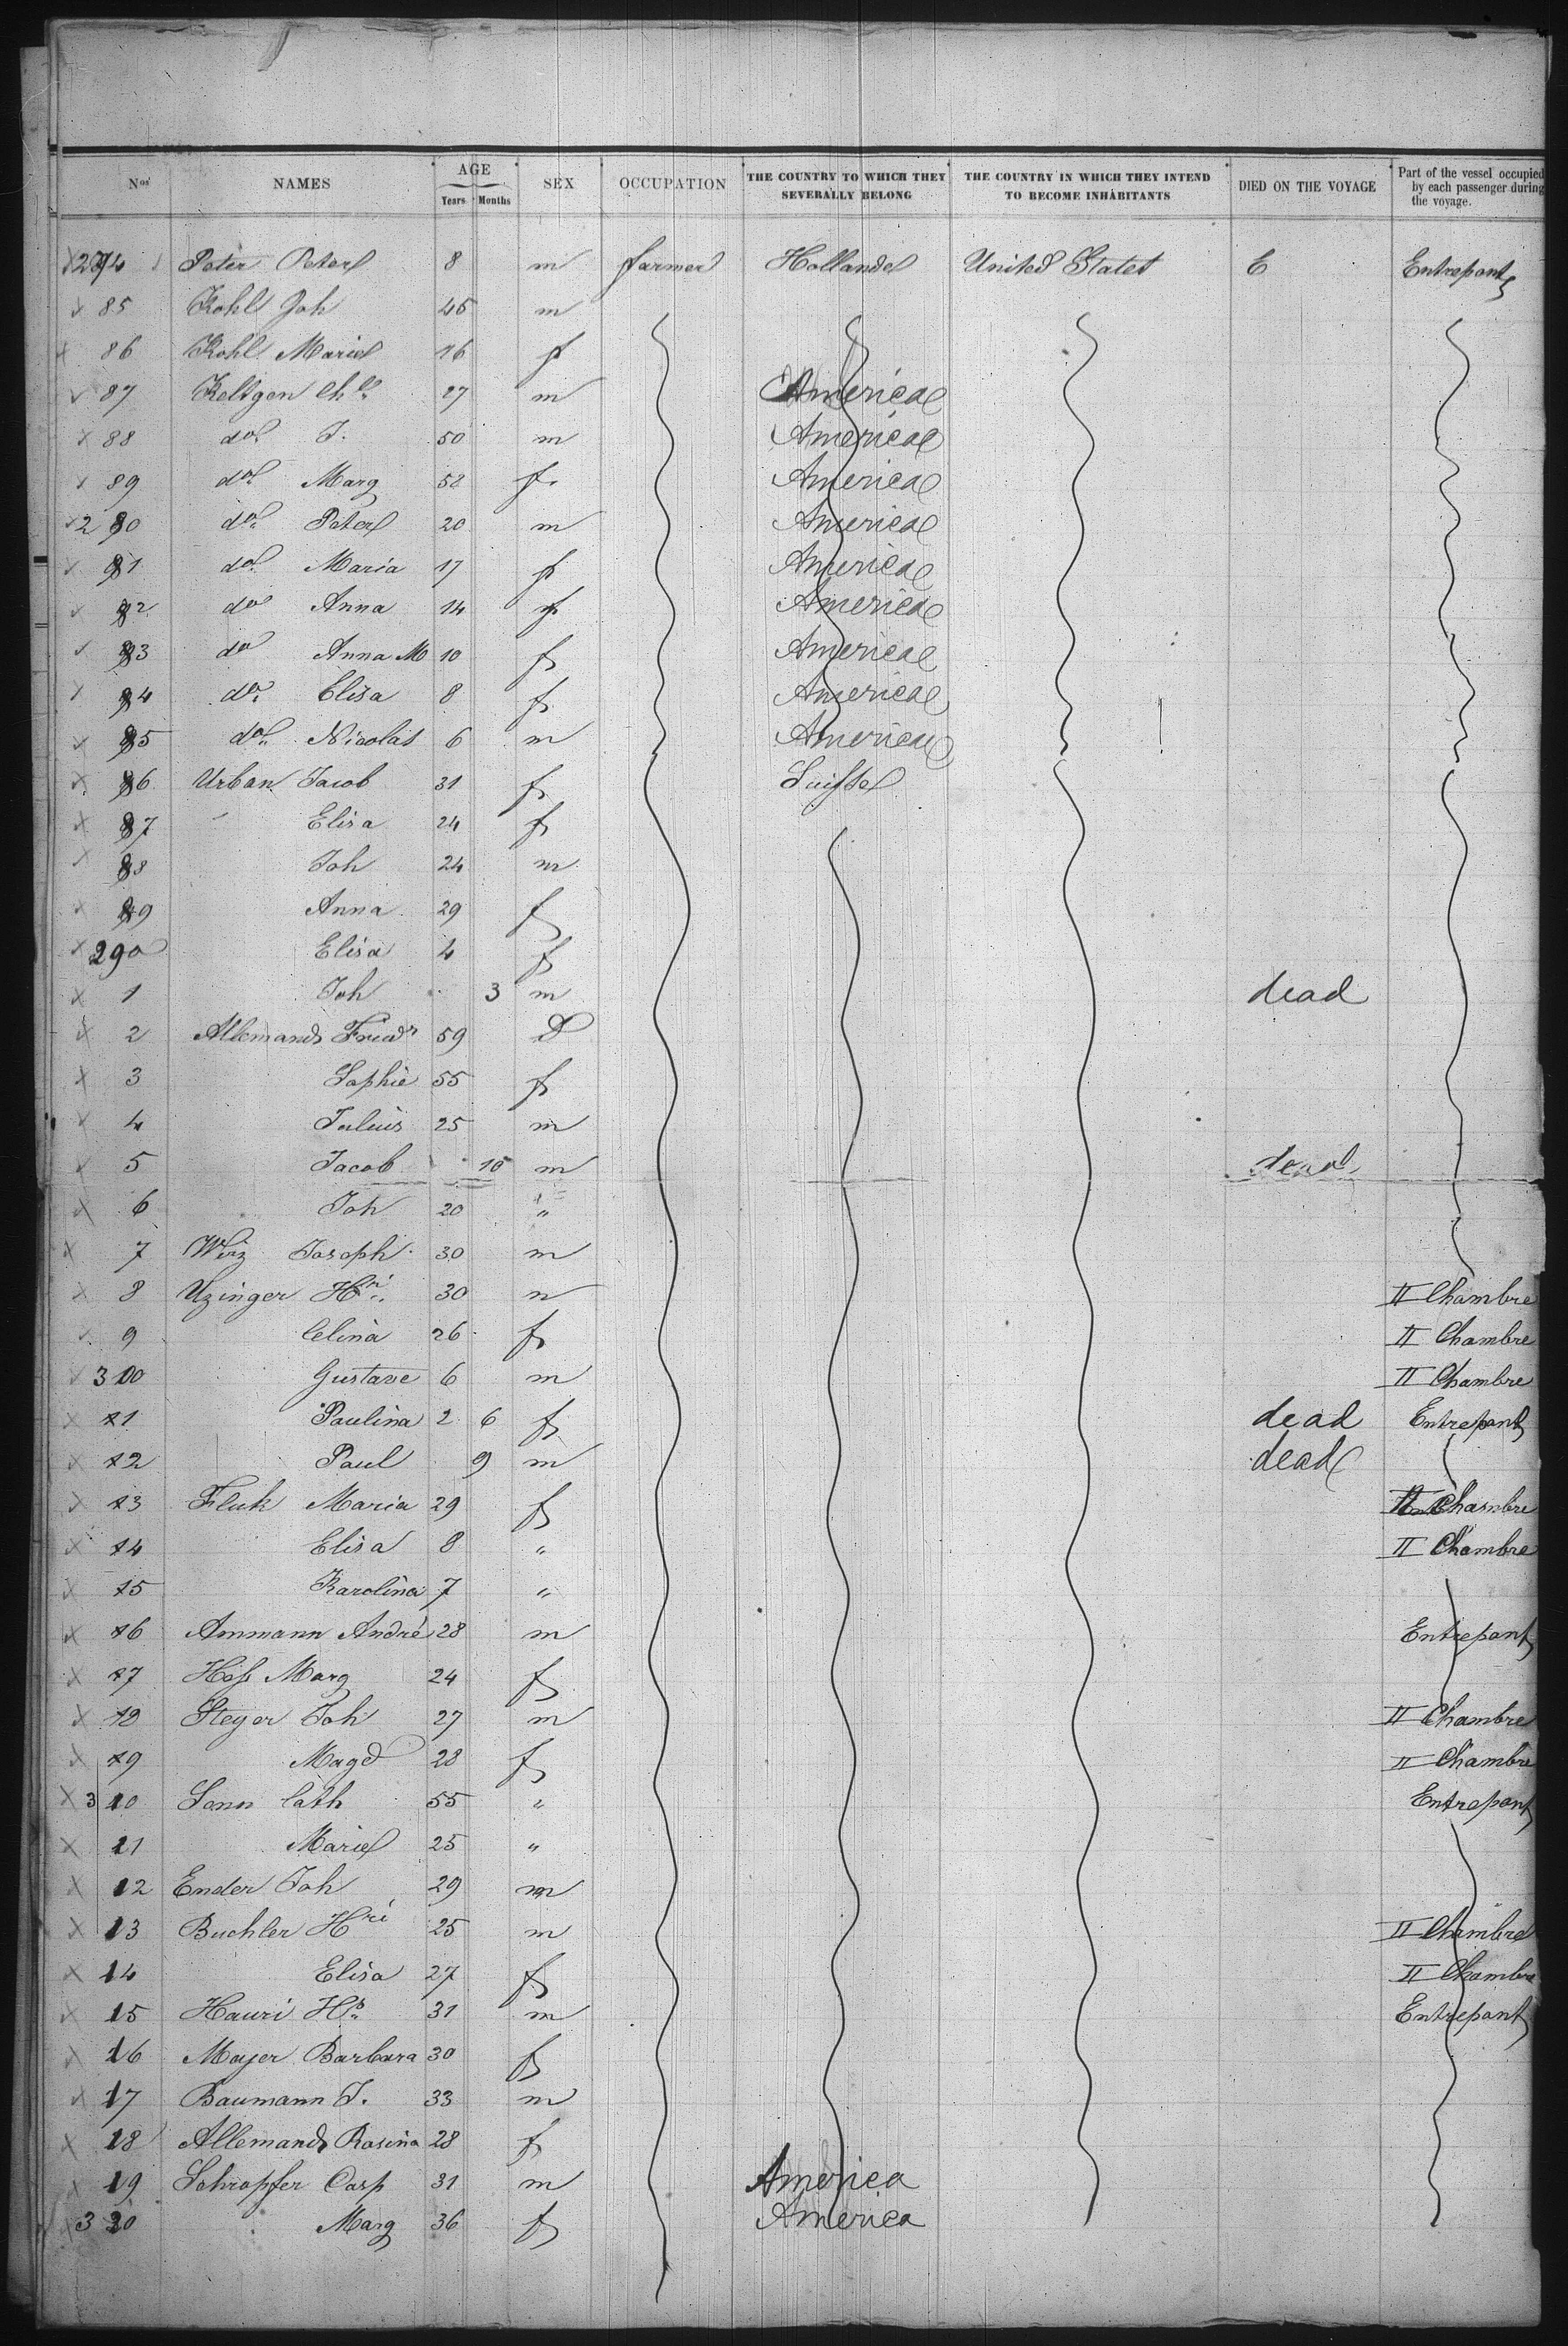 Nos NAMES AGE Years Months SEX OCCUPATION THE COUNTRY TO WHICH THEY SEVERALLY BELONG THE COUNTRY IN WHICH THEY INTEND TO BECOME INHABITANTS DIED ON THE VOYAGE Part of the vessel occupied by each passenger during the voyage.
274 Peter Peter 8 m farmer Hollande United States Entrepont
85 Kohl Joh 45 m
86 Kohl Marie 16 f
87 Keltgen Ch 27 m America
88 do J. 50 m America
89 do Marg 52 f. America
280 do Peter 20 m America
81 do Maria 17 f America
82 do Anna 14 f America
83 do Anna M 10 f America
84 do Elisa 8 f America
85 do Nicolas 6 m America
86 Urban Jacob 31 f Suisse
87 Elisa 24 f
88 Joh 24 m
89 Anna 29 f
290 Elisa 4 f
1 Joh 3 m dead
2 Allemand Friedr 59
3 Sophie 55 f
4 Julius 25 m
5 Jacob 10 m dead
6 Joh 20 "
7 Wirz Joseph 30 m
8 Uzinger Hri 30 m II Chambre
9 Celina 26 f II Chambre
300 Gustave 6 m II Chambre
1 Paulina 2 6 f dead Entrepont
2 Paul 9 m dead
3 Fluk Maria 29 f II Chambre
4 Elisa 8 " II Chambre
5 Karolina 7 "
6 Ammann André 28 m Entrepont
7 Hofs Marg 24 f
8 Steyer Joh 27 m II Chambre
9 Magd 28 f II Chambre
310 Senn Cath 55 " Entrepont
11 Marie 25 "
12 Ender Joh 29 m
13 Buchler Hri 25 m II Chambre
14 Elisa 27 f II Chambre
15 Hauri Hs 31 m Entrepont
16 Mayer Barbara 30 f
17 Baumann J. 33 m
18 Allemand Rosina 28 f
19 Schropfer Casp 31 m America
320 Marg 36 f America